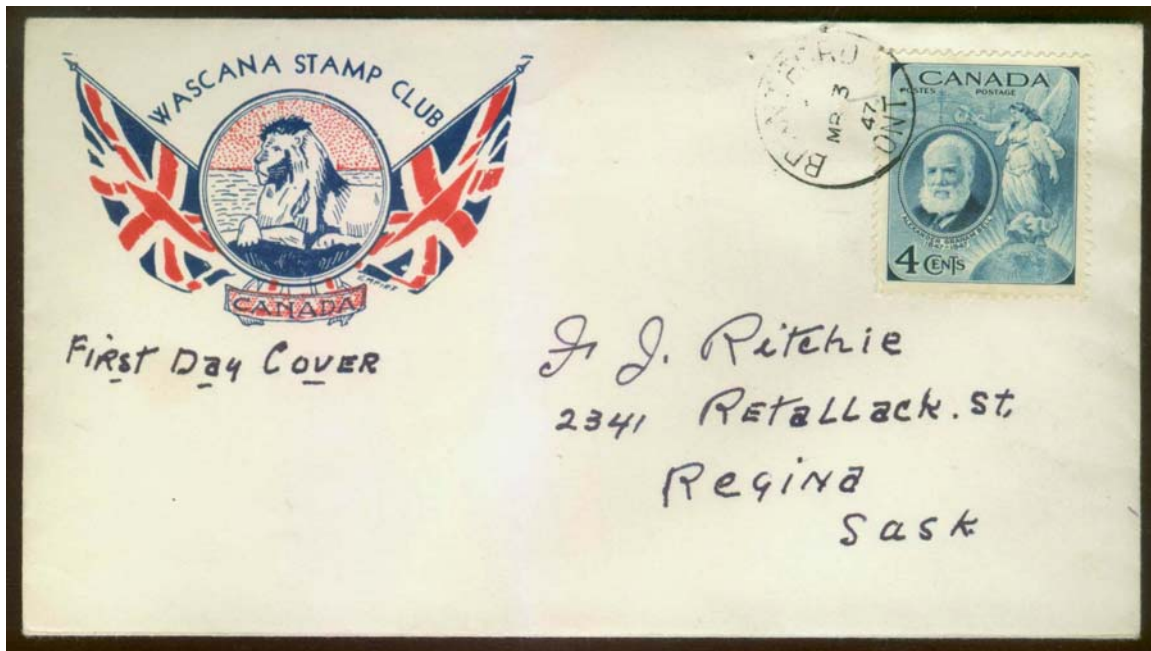 WASCANA STAMP CLUB
EMPIRE
CANADA
First Day Cover
BRANTFORD
MR 3
47
ONT.
CANADA
POSTES POSTAGE
ALEXANDER GRAHAM BELL
1847-1947
4 CENTS
J. Ritchie
2341 Retallack. St.
Regina
Sask